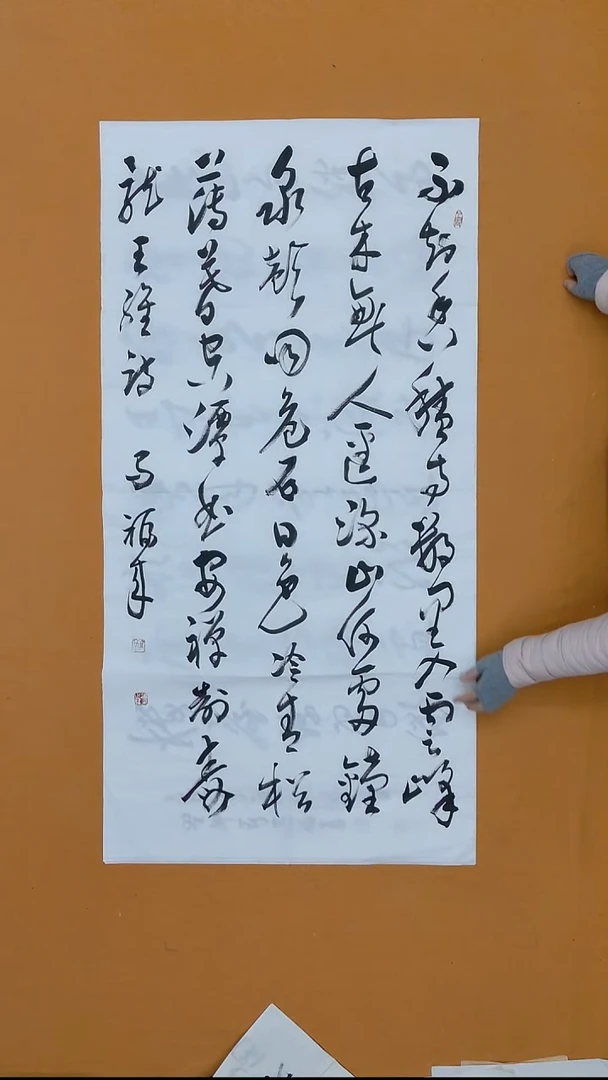 不知香積寺數里入雲峰
古木無人逕深山何處鐘
泉聲咽危石日色冷青松
薄暮空潭曲安禪制毒
龍王維詩 福